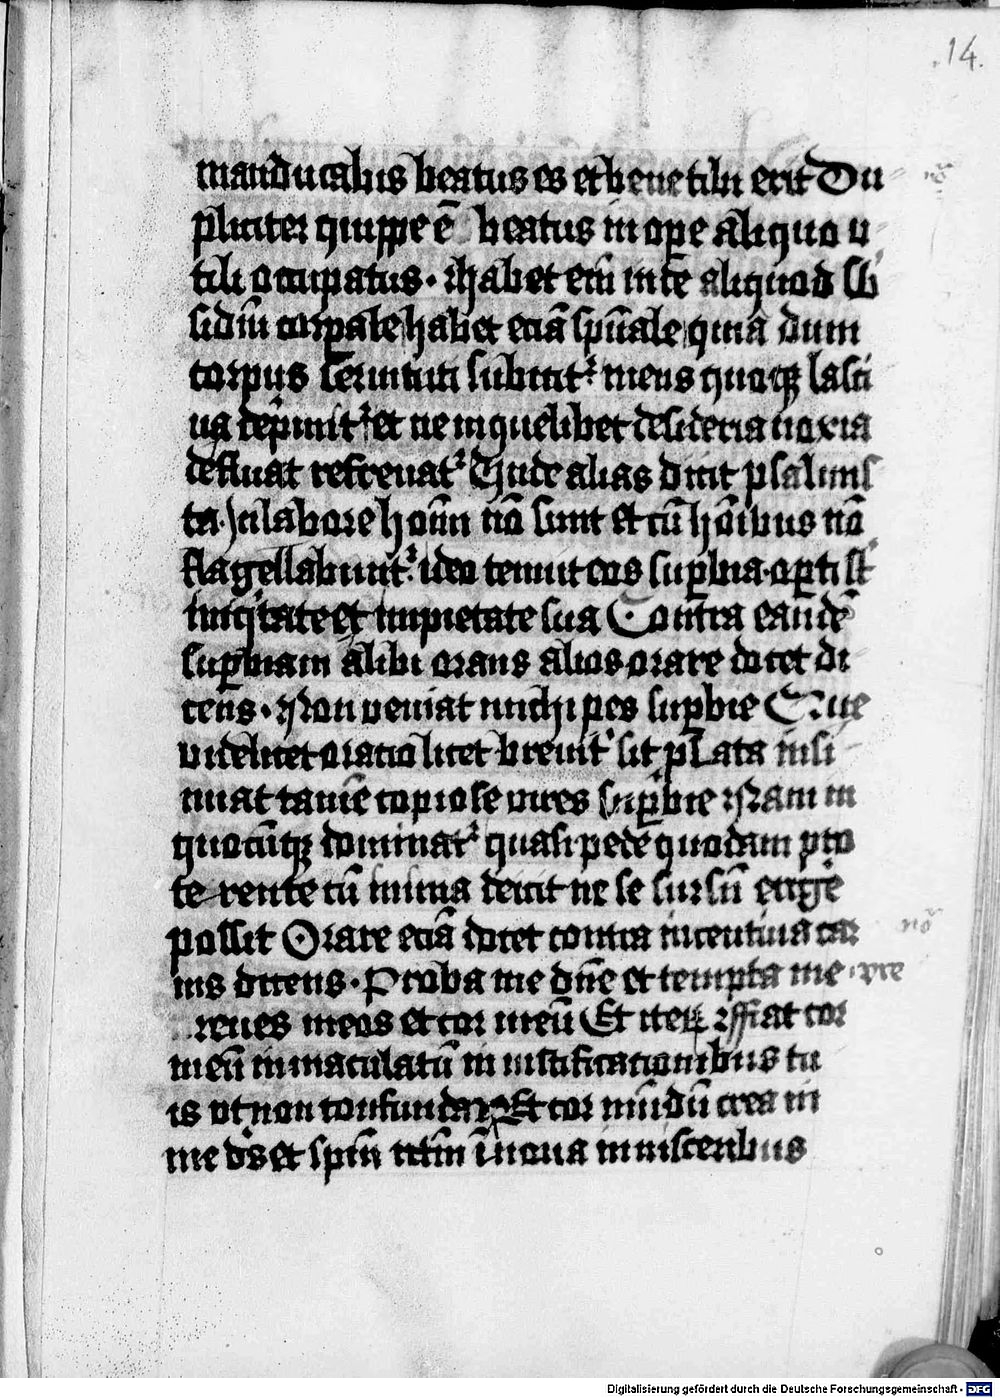 14.
manducabis beatus es et bene tibi erit Du
pliciter quippe ē beatus in ope aliquo v
tili occupatus. Habet em̄ in se aliquod sub
sidiū corpale habet eciā spūale quia dum
corpus seruituti subicit᷑ mens quoqꝫ lasci
ua dep̄mit᷑ et ne in quelibet desideria noxia
defluat refrenat᷑ Unde alias dicit psalmis
ta. In labore hoīm nō sunt et cū hōibus nō
flagellabunt᷑. ideo tenuit eos suꝑbia. oꝑti sūt
iniq̇tate et impietate sua Contra eandē
suꝑbiam alibi orans alios orare docet di
cens. Non veniat michi pes suꝑbie Que
videlicet oracio licet breuit᷑ sit plata insi
nuat tamē copiose vires suꝑbie Nam in
quocūqꝫ dominat᷑ quasi pede quodam pro
terente cū in ima deicit ne se sursū erige
possit Orare eciā docet contra incentiua car
nis dicens. Proba me dn̄e et tempta me. vre
renes meos et cor meū Et iteꝝ ffiat cor
meū immaculatū in iustificationibus tu
is vt non confundar Et cor mūdū crea in
me ds̄ et spm̄ rc̄m īnoua in visceribus
nō
nō
Digitalisierung gefördert durch die Deutsche Forschungsgemeinschaft - DFG